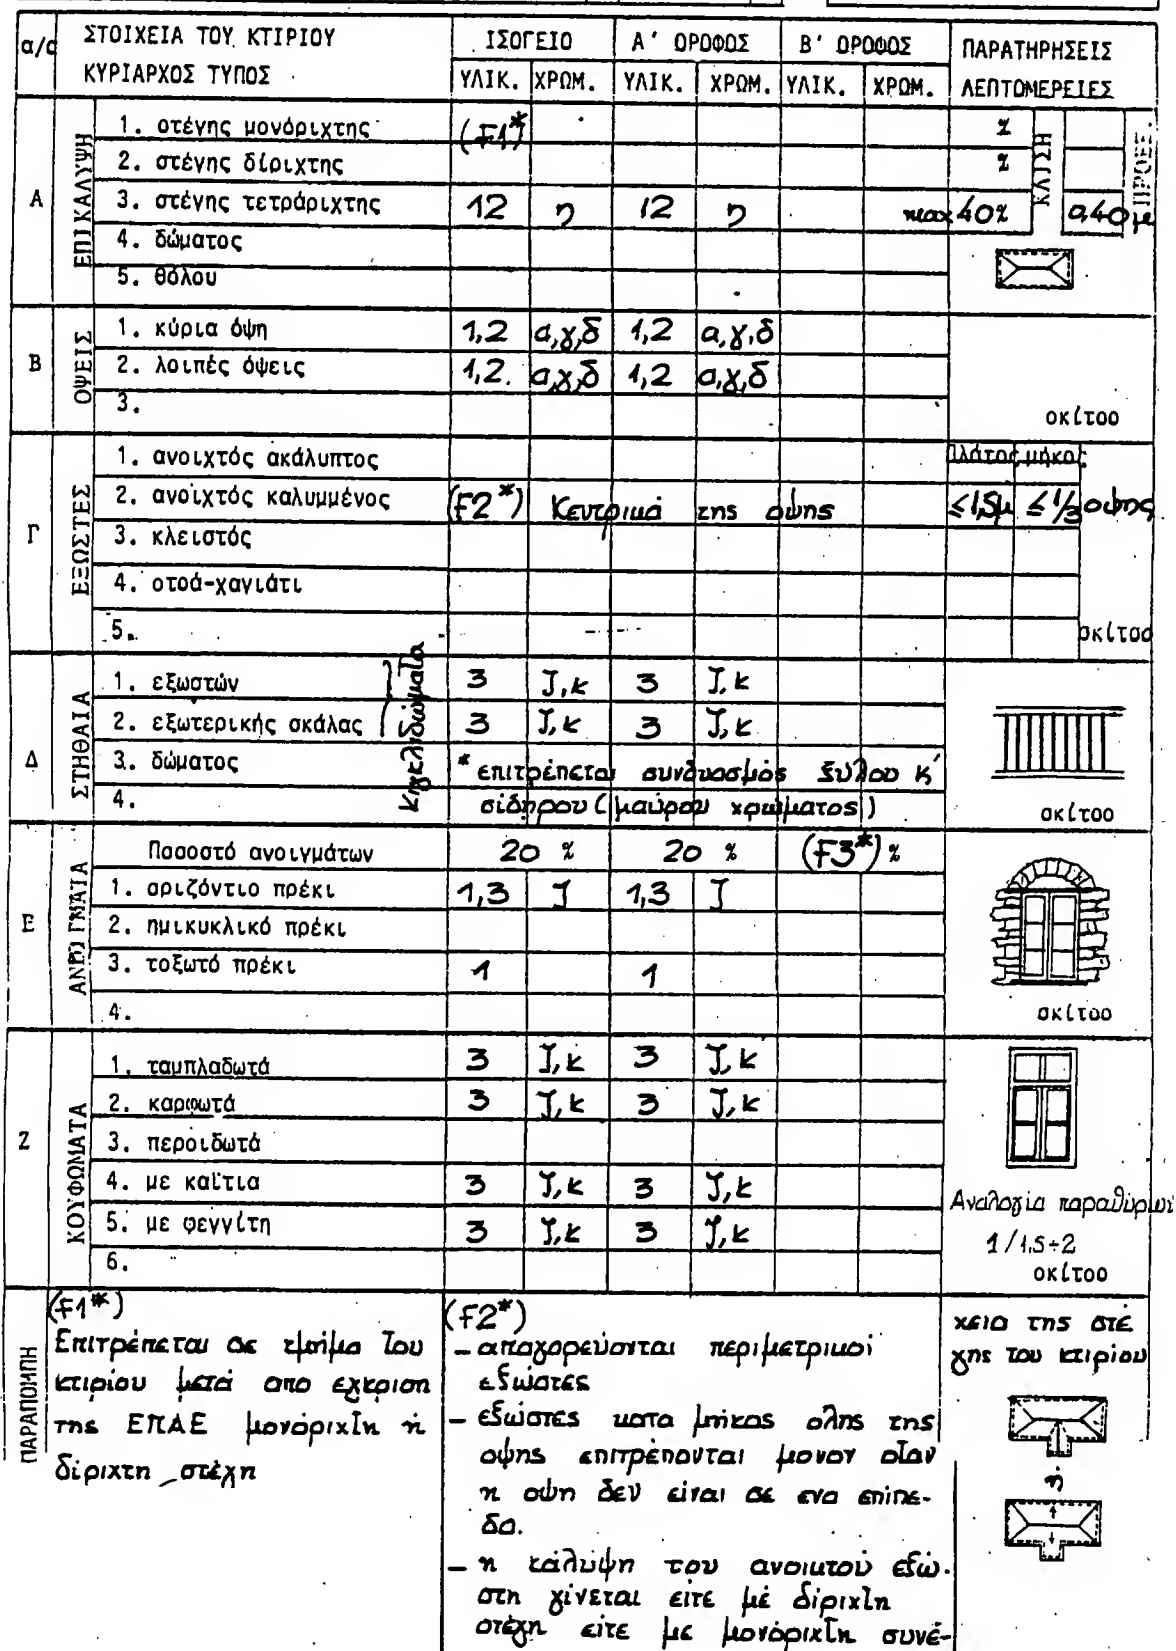 α/α ΣΤΟΙΧΕΙΑ ΤΟΥ ΚΤΙΡΙΟΥ ΙΣΟΓΕΙΟ Α' ΟΡΟΦΟΣ Β' ΟΡΟΦΟΣ ΠΑΡΑΤΗΡΗΣΕΙΣ
ΚΥΡΙΑΡΧΟΣ ΤΥΠΟΣ ΥΛΙΚ. ΧΡΩΜ. ΥΛΙΚ. ΧΡΩΜ. ΥΛΙΚ. ΧΡΩΜ. ΛΕΠΤΟΜΕΡΕΙΕΣ
Α ΕΠΙΚΑΛΥΨΗ
1. στέγης μονόριχτης (F1*) % ΚΛΙΣΗ ΠΡΟΕΞ.
2. στέγης δίριχτης %
3. στέγης τετράριχτης 12 η 12 η max 40% 0,40 με
4. δώματος
5. θόλου
Β ΟΨΕΙΣ
1. κύρια όψη 1,2 α,γ,δ 1,2 α,γ,δ
2. λοιπές όψεις 1,2. α,γ,δ 1,2 α,γ,δ
3. σκίτσο
Γ ΕΞΩΣΤΕΣ
1. ανοιχτός ακάλυπτος πλάτος μήκος
2. ανοιχτός καλυμμένος (F2*) Κεντρικά της όψης ≤1,5μ ≤1/3 οψης
3. κλειστός
4. στοά-χαγιάτι
5. σκίτσο
Δ ΣΤΗΘΑΙΑ κιγκλιδώματα
1. εξωστών 3 J,κ 3 J,κ
2. εξωτερικής σκάλας 3 J,κ 3 J,κ
3. δώματος * επιτρέπεται συνδυασμός ξύλου κ'
4. σίδηρου (μαύρου χρώματος) σκίτσο
Ε ΑΝΟΙΓΜΑΤΑ
Ποσοστό ανοιγμάτων 20 % 20 % (F3*) %
1. οριζόντιο πρέκι 1,3 J 1,3 J
2. ημικυκλικό πρέκι
3. τοξωτό πρέκι 1 1
4. σκίτσο
Ζ ΚΟΥΦΩΜΑΤΑ
1. ταμπλαδωτά 3 J,κ 3 J,κ
2. καρφωτά 3 J,κ 3 J,κ
3. περσιδωτά
4. με καΐτια 3 J,κ 3 J,κ Αναλογία παραθύρων
5. με φεγγίτη 3 J,κ 3 J,κ 1/1,5÷2
6. σκίτσο
ΠΑΡΑΠΟΜΠΗ
(F1*)
Επιτρέπεται σε τμήμα του
κτιρίου μετά απο εγκριση
της ΕΠΑΕ μονόριχτη ή
δίριχτη στέγη
(F2*)
- απαγορεύονται περιμετρικοί
εξώστες
- εξώστες κατα μήκος ολης της
οψης επιτρέπονται μονον οταν
η οψη δεν είναι σε ενα επίπε-
δο.
- η κάλυψη του ανοικτού εξώ-
στη γίνεται είτε μέ δίριχτη
στέγη είτε με μονόριχτη συνέ-
χεια της στέ
γης του κτιρίου
ή